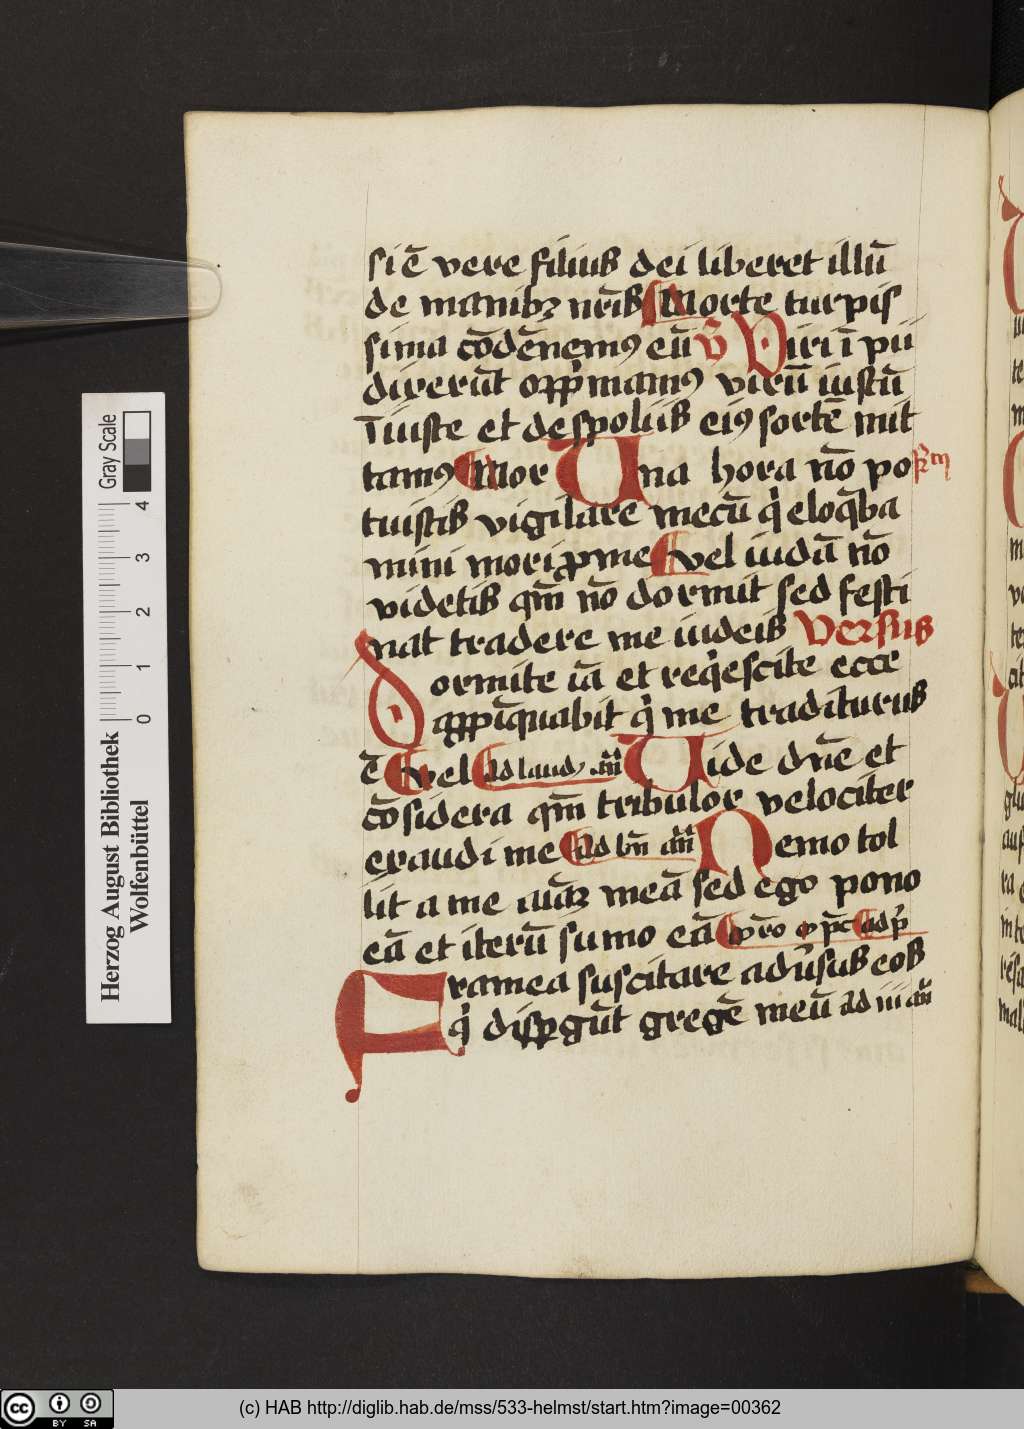 si ē vere filius dei liberet illū
de manibꝫ nr̄is Morte turpis
sima cōdēnemꝰ eū v̄ Viri īpii
dixerūt opp̄mamꝰ virū iustū
īiuste et de spoliis eiꝰ sortē mit
tamꝰ Mor Una hora nō po
tuistis vigilare mecū q̇ eloq̄ba
mini mori ꝓ me vel iudā nō
videtis qm̄ nō dormit sed festi
nat tradere me iudeis Versus
Dormite iā et reqͥescite ecce
appīquabit qͥ me traditurus
ē vel Ad laud an̄ Vide dn̄e et
cōsidera qm̄ tribulor velociter
exaudi me Ad bn̄ an̄ Nemo tol
lit a me aīaꝫ meā sed ego pono
eā et iterū sumo eā
Framea suscitare adūsus eos
qͥ dispgūt gregē meū ad iii an̄
Gray Scale
4
3
2
1
0
Herzog August Bibliothek
Wolfenbüttel
(c) HAB http://diglib.hab.de/mss/533-helmst/start.htm?image=00362
cc BY SA